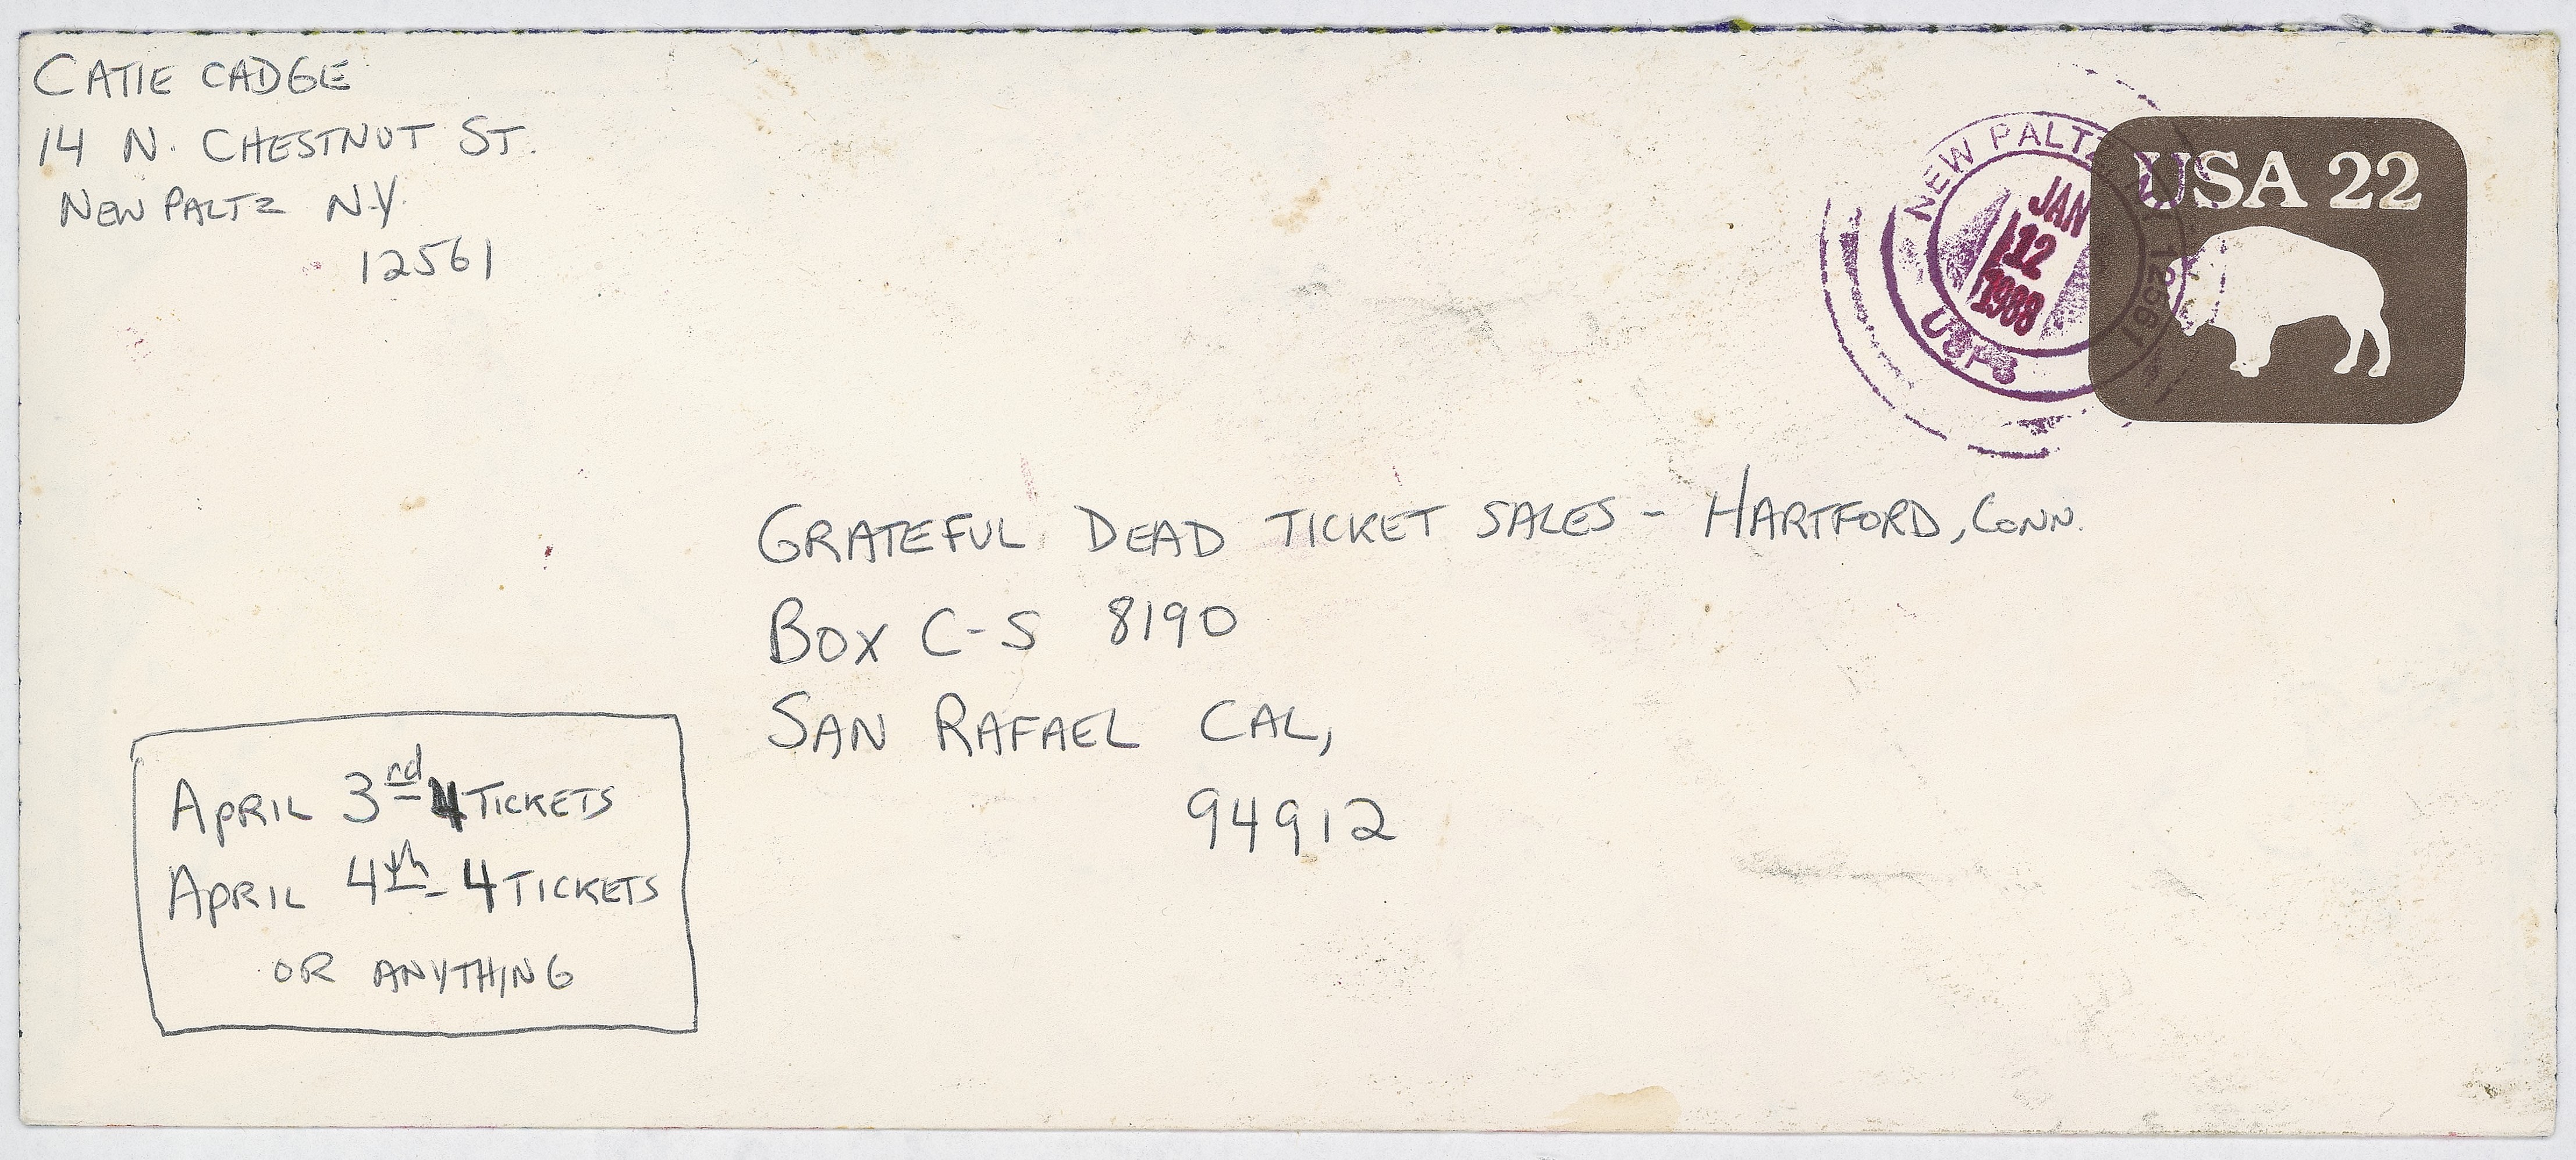 CATIE CADGE
14 N. CHESTNUT ST.
NEW PALTZ N.Y.
12561
NEW PALTZ NY 12561
JAN
12
1988
USPS
USA 22
GRATEFUL DEAD TICKET SALES - HARTFORD, CONN.
BOX C-S 8190
SAN RAFAEL CAL,
94912
APRIL 3rd 4 TICKETS
APRIL 4th - 4 TICKETS
OR ANYTHING